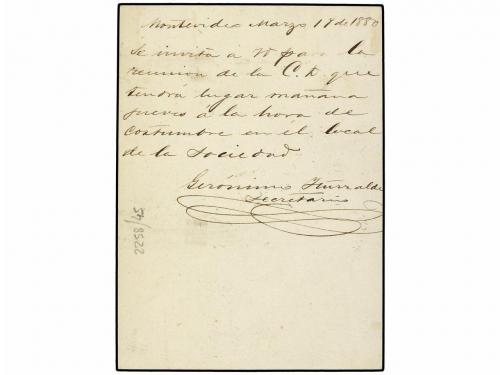 Montevideo Marzo 17 de 1880
Se invita a Vd para la
reunion de la C. D. que
tendrá lugar mañana
jueves á la hora de
costumbre en el local
de la Sociedad
Gerónimo Iturralde
Secretario
2258/45